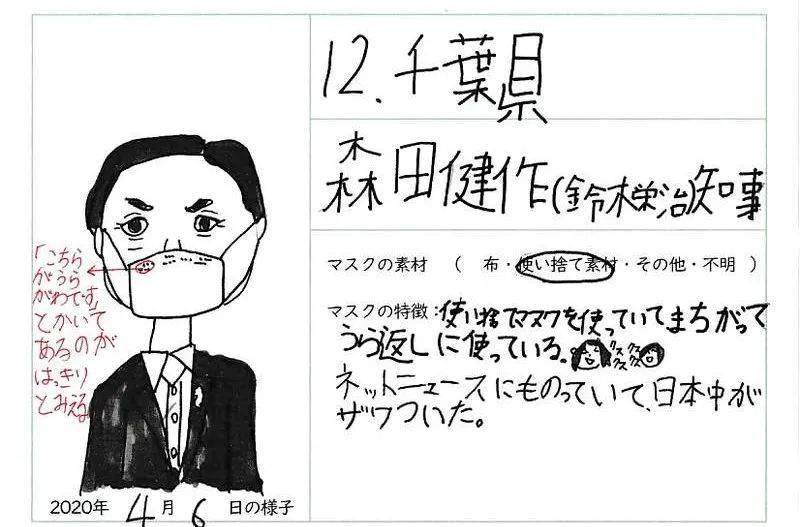 12.千葉県
森田健作(鈴木栄治)知事
マスクの素材 ( 布・使い捨て素材・その他・不明 )
マスクの特徴:使い捨てマスクを使っていてまちがって
うら返しに使っている。
クスクス
クスクス
ネットニュースにものっていて、日本中が
ザワついた。
「こちら
がうら
がわです」
とかいて
あるのが
はっきり
とみえる。
2020年 4月 6 日の様子